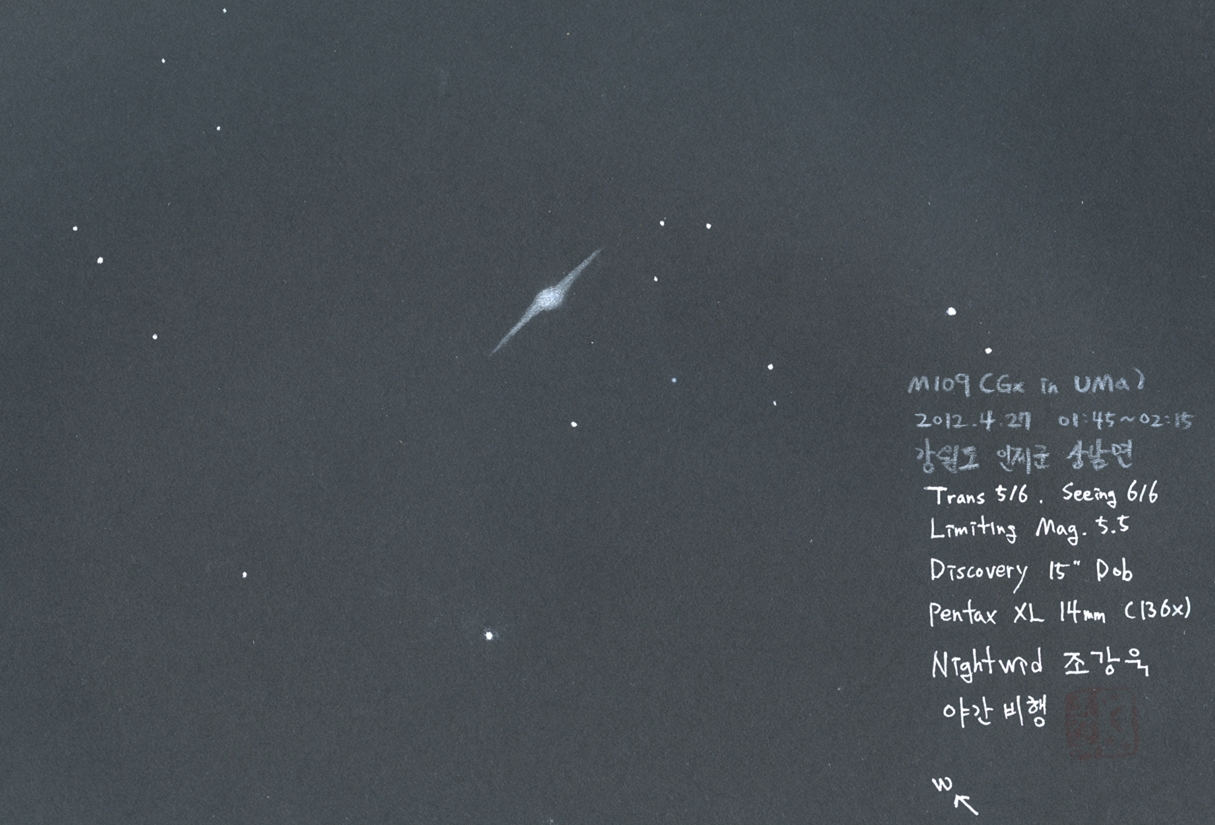 M109 (Gx in UMa)
2012.4.27 01:45~02:15
강원도 인제군 상남면
Trans 5/6. Seeing 6/6
Limiting Mag. 5.5
Discovery 15" Dob
Pentax XL 14mm (136x)
Nightwid 조강욱
야간비행
W